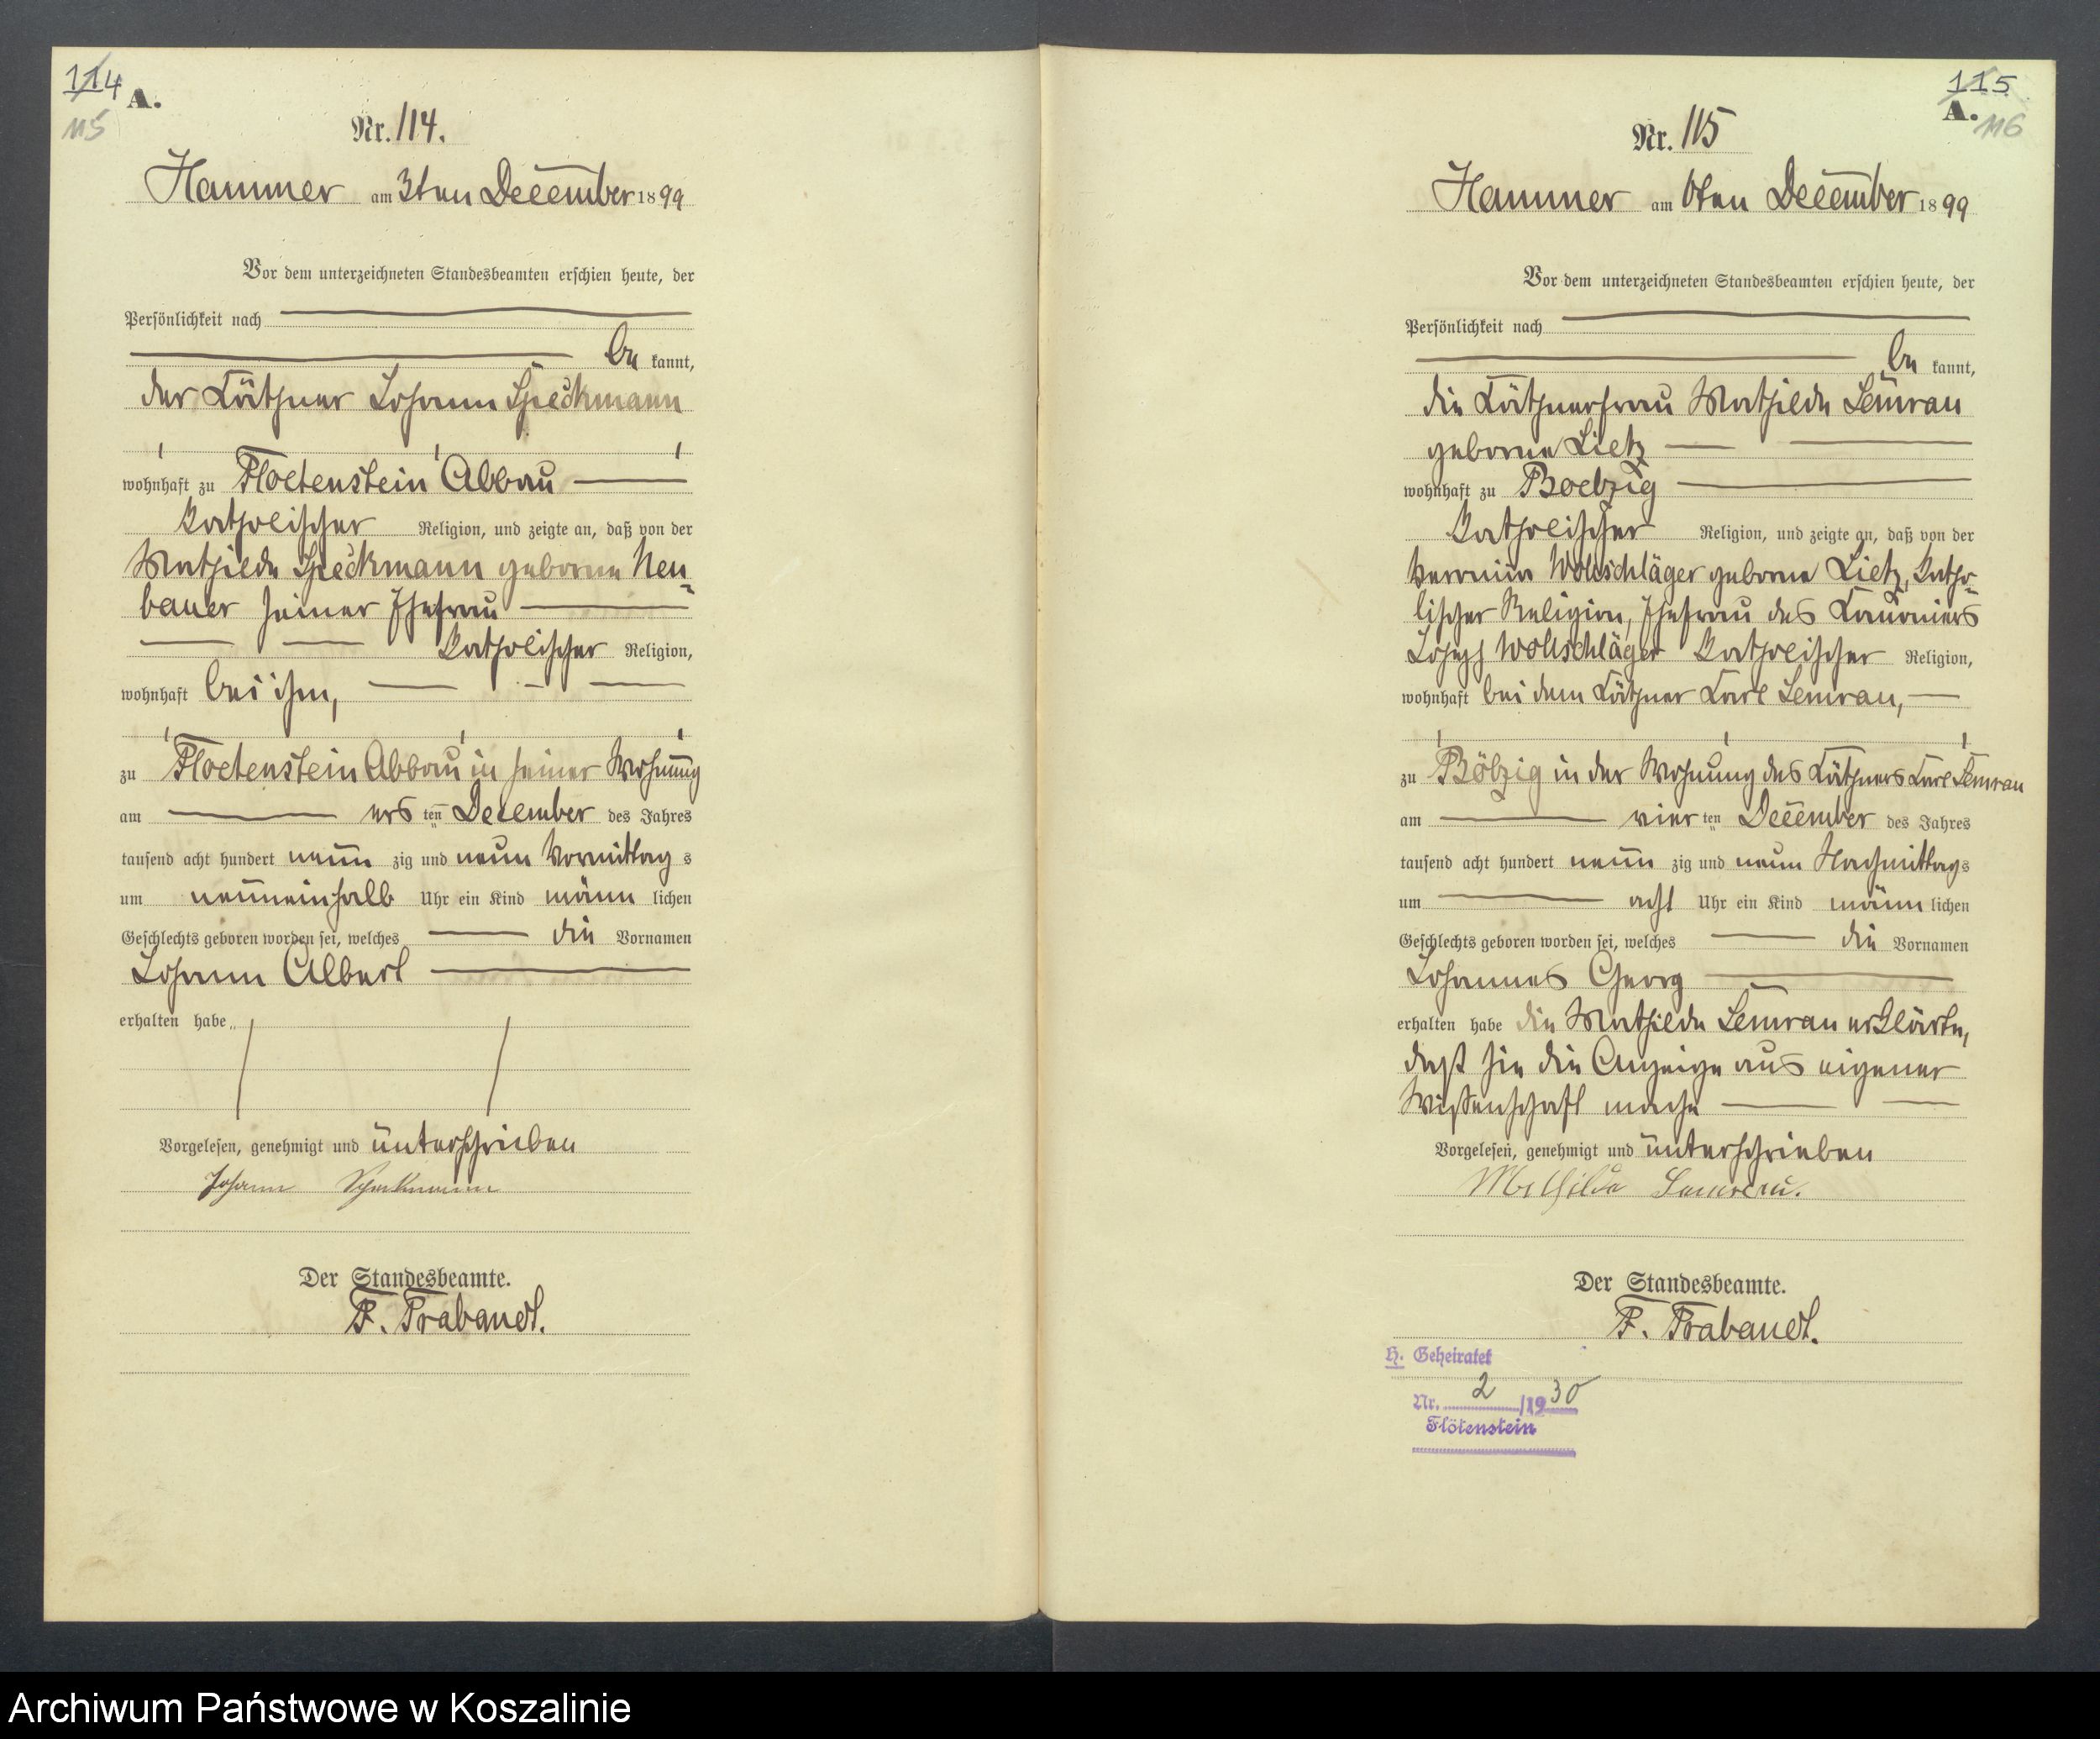 114
A.
115
Nr. 114.
Hammer am 3ten December 1899
Vor dem unterzeichneten Standesbeamten erschien heute, der
Persönlichkeit nach
be kannt,
der Käthner Johann Speckmann
wohnhaft zu Floetenstein Abbau
katholischer Religion, und zeigte an, daß von der
Mathilde Speckmann geborene Neu
bauer seiner Ehefrau
katholischer Religion,
wohnhaft bei ihm,
zu Floetenstein Abbau in seiner Wohnung
am ers ten December des Jahres
tausend acht hundert neun zig und neun Vormittag s
um neuneinhalb Uhr ein Kind männ lichen
Geschlechts geboren worden sei, welches die Vornamen
Johann Albert
erhalten habe
Vorgelesen, genehmigt und unterschrieben
Johann Speckmann
Der Standesbeamte.
F. Trabandt.
115
A.
116
Nr. 115
Hammer am 6ten December 1899
Vor dem unterzeichneten Standesbeamten erschien heute, der
Persönlichkeit nach
be kannt,
die Käthnerfrau Mathilde Semrau
geborne Lietz
wohnhaft zu Boelzig
katholischer Religion, und zeigte an, daß von der
Veronica Wollschläger geborne Lietz, katho-
lischer Religion, Ehefrau des Kanoniers
Joseph Wollschläger katholischer Religion,
wohnhaft bei dem Käthner Carl Semrau,
zu Bölzig in der Wohnung des Käthners Carl Semrau
am vier ten December des Jahres
tausend acht hundert neun zig und neun Nachmittag s
um acht Uhr ein Kind männ lichen
Geschlechts geboren worden sei, welches die Vornamen
Johannes Georg
erhalten habe die Mathilde Semrau erklärte,
daß sie die Anzeige aus eigener
Wissenschaft mache
Vorgelesen, genehmigt und unterschrieben
Mathilde Semrau.
Der Standesbeamte.
F. Trabandt.
H. Geheiratet
Nr. 2 /1930
Flötenstein
Archiwum Państwowe w Koszalinie